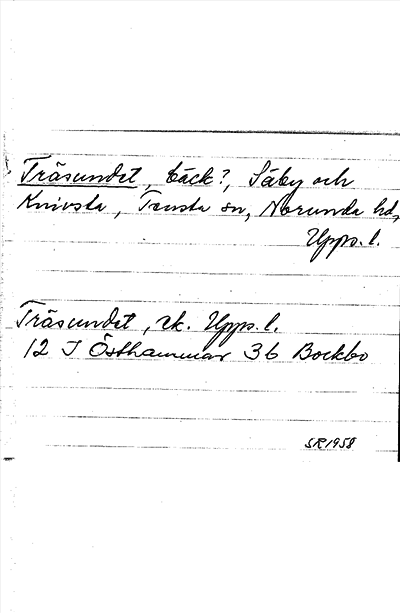 Träsundet, bäck?, Säby och
Knivsta, Tensta sn, Norunda hd,
Upps. l.
Träsundet, rk. Upps. l.
12 I Östhammar 3b Bockbo
SR 1958